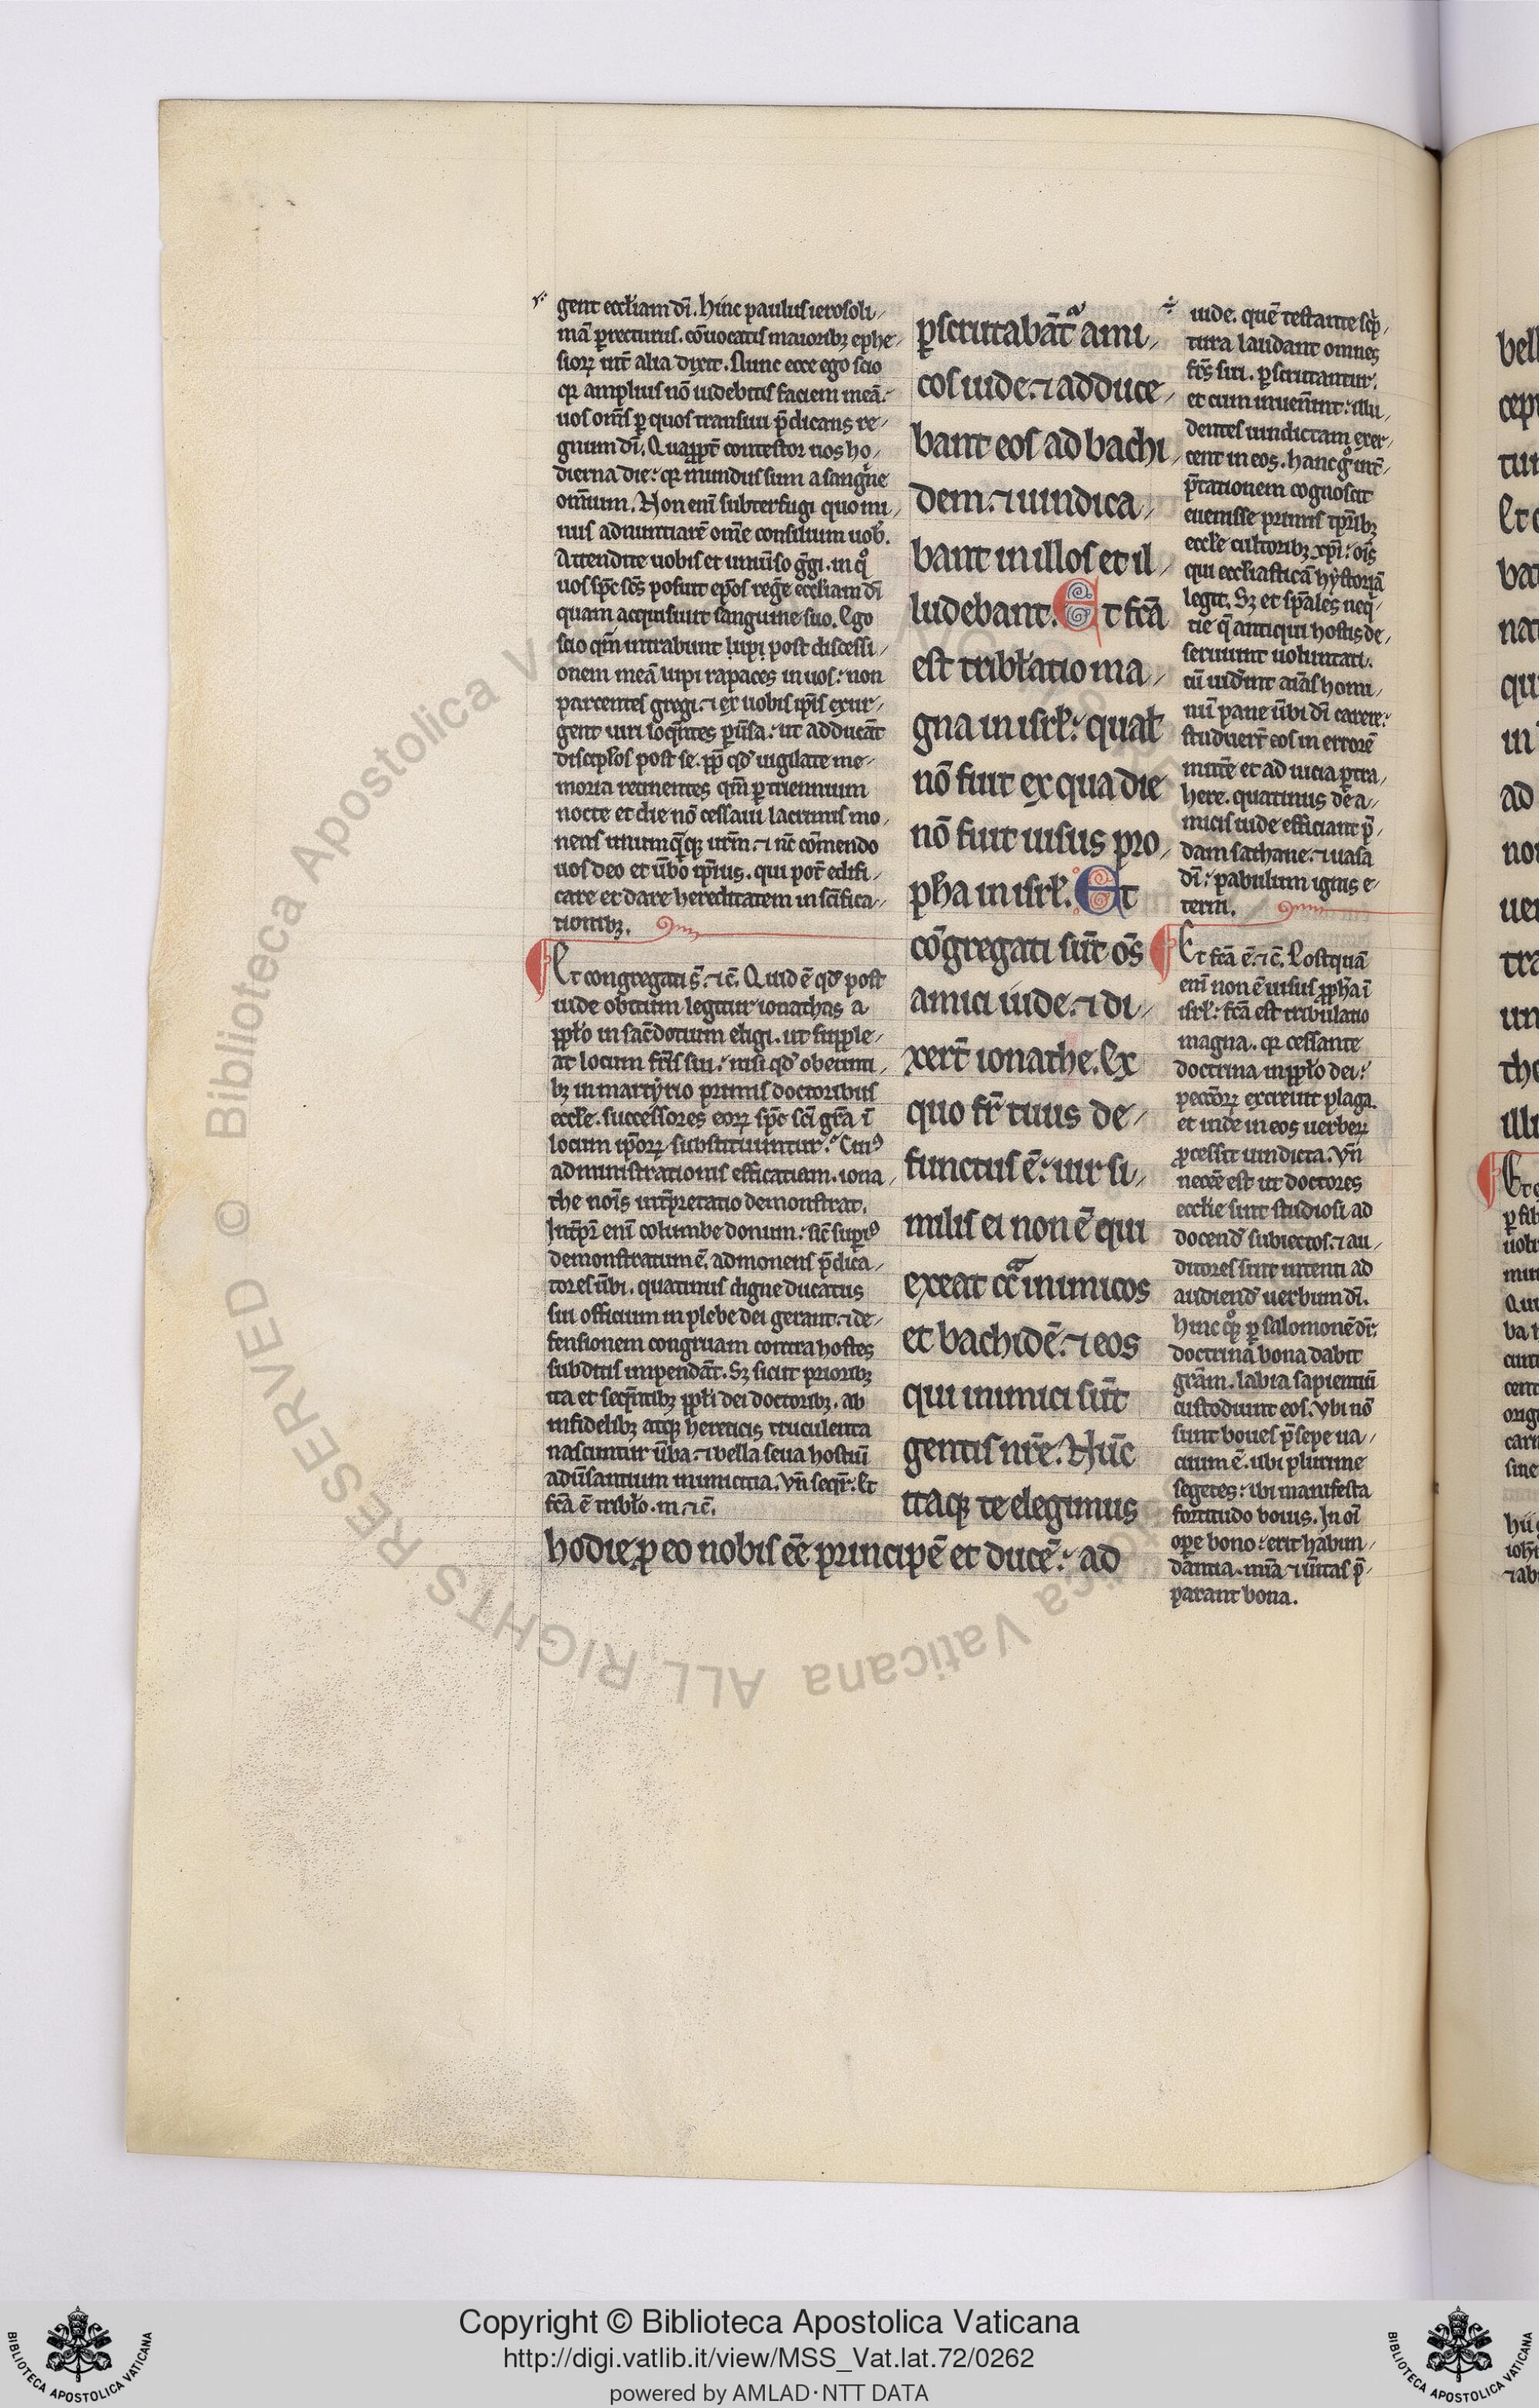 gent eccl̄iam dī. hinc paulus ierosoli
mā ꝑrecturus. cōuocatis maioribꝫ ephe
sioꝝ int̄ alia dixit. Nunc ecce ego scio
qꝛ amplius nō uidebitis faciem meā.
uos om̄s ꝑ quos transiui p̄dicans re
gnum dī. Quapp̄t contestor uos ho
dierna die. qꝛ mundus sum a sangͥne
om̄ium. Non enī subterfugi quo mi
nus adnuntiarē om̄e consilium uob̄.
Attendite uobis et uniūso gͥgi. in qͦ
uos sp̄c sc̄s posuit ep̄os reḡe eccl̄iam dī
quam acquisiuit sanguine suo. Ego
scio qm̄ intrabunt lupi post discessi
onem meā lupi rapaces in uos. non
parcentes gregi. ⁊ ex uobis ip̄is exur
gent uiri loqn̄tes ꝑuersa. ut adducāt
discipl̄os post se. ꝓp̄ qd̓ uigilate me
moria retinentes qm̄ ꝑ triennium
nocte et die nō cessaui lacrimis mo
nens unumqͥqꝫ ur̄m. ⁊ nc̄ com̄endo
uos deo et ūbo ip̄ius. qui pot̄ edifi
care et dare hereditatem in sc̄ifica
tionibꝫ.
Et congregati s̄. ⁊ c̄. Quid ē qd̓ post
iude obitum legitur ionathas a
ppl̄o in sac̄dotium eligi. ut supple
at locum fr̄is sui. nisi qd̓ obeunti
bꝫ in martyrio primis doctoribus
eccl̄e. successores eoꝝ sp̄c sc̄i gr̄a ī
locum ip̄oꝝ substituuntur. Cuiꝰ
administrationis efficatiam. iona
the nōis int̄pretatio demonstrat.
Int̄pr̄ enī columbe donum. sic̄ supͥꝰ
demonstratum ē. admonens p̄dica
tores ūbi. quatinus digne ducatus
sui officium in plebe dei gerant. ⁊ de
fensionem congruam contra hostes
subditis impendāt. Sꝫ sicut prioribꝫ
ita et seqn̄tibꝫ ppl̄i dei doctoribꝫ. ab
infidelibꝫ atqꝫ hereticis truculenta
nascuntur ūba. ⁊ bella seua hostiū
adūsantium inimicitia. Vn̄ seqr̄. Et
fc̄a ē tribl̄o. m ⁊ c̄.
ꝑscrutabāt͛ ami
cos iude. ⁊ adduce
bant eos ad bachi
dem. ⁊ uindica
bant in illos et il
ludebant. Et fc̄a
est tribl̄atio ma
gna in isrl̄. qual̄
nō fuit ex qua die
nō fuit uisus pro
ph̄a in isrl̄. Et
cōgregati sūt om̄s
amici iude. ⁊ di
xer̄t ionathe. Ex
quo fr̄ tuus de
functus ē. uir si
milis ei non ē qui
exeat cͣ inimicos
et bachidē. ⁊ eos
qui inimici sūt
gentis nr̄e. Nūc
itaqꝫ te elegimus
hodie ꝓ eo nobis ēe principē et ducē. ad
iude. quē testante scͥp
tura laudant omnes
fr̄s sui. ꝑscrutantur.
et cum inuen̄int. illu
dentes uindictam exer
cent in eos. hanc gͦ int̄
p̄tationem cognoscit
euenisse primis tp̄ribꝫ
eccl̄e cultoribꝫ xp̄i. om̄s
qui eccl̄iasticā hystoriā
legit. Sꝫ et sp̄ales neqͥ
tie qͥ antiqui hostis de
seruiunt uoluntati.
cū uid̓int aīas homi
nū pane ūbi dī carere.
studuer̄t eos in errorē
mitte͛ et ad uicia ꝑtra
here. quatinus de a
micis iude efficiant p̄
dam sathane. ⁊ uasa
dī. pabulum ignis e
terni.
Et fc̄a ē. ⁊ c̄. Postquā
enī non ē uisus pph̄a ī
isrl̄. fc̄a est tribulatio
magna. qꝛ cessante
doctrina in ppl̄o dei.
peccatoꝝ excreuit plaga.
et inde in eos uerbeꝝ
ꝓcessit uindicta. Vn̄
necc̄e est ut doctores
eccl̄ie sint studiosi ad
docend̓ subiectos. ⁊ au
ditores sint intenti ad
audiend̓ uerbum dī.
hinc qͦqꝫ ꝑ salomonē dr̄.
doctrinā bona dabit
gr̄am. labia sapientiū
custodiunt eos. Vbi nō
sunt boues p̄sepe ua
cuum ē. ubi plurime
segetes. ibi manifesta
fortitudo bouis. In om̄i
oꝑe bono. erit habun
dantia. mīa ⁊ ūitas p̄
parant bona.
Copyright © Biblioteca Apostolica Vaticana
http://digi.vatlib.it/view/MSS_Vat.lat.72/0262
powered by AMLAD·NTT DATA